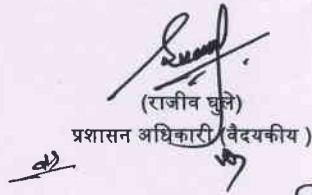 (राजीव घुले)
प्रशासन अधिकारी (वैदयकीय )